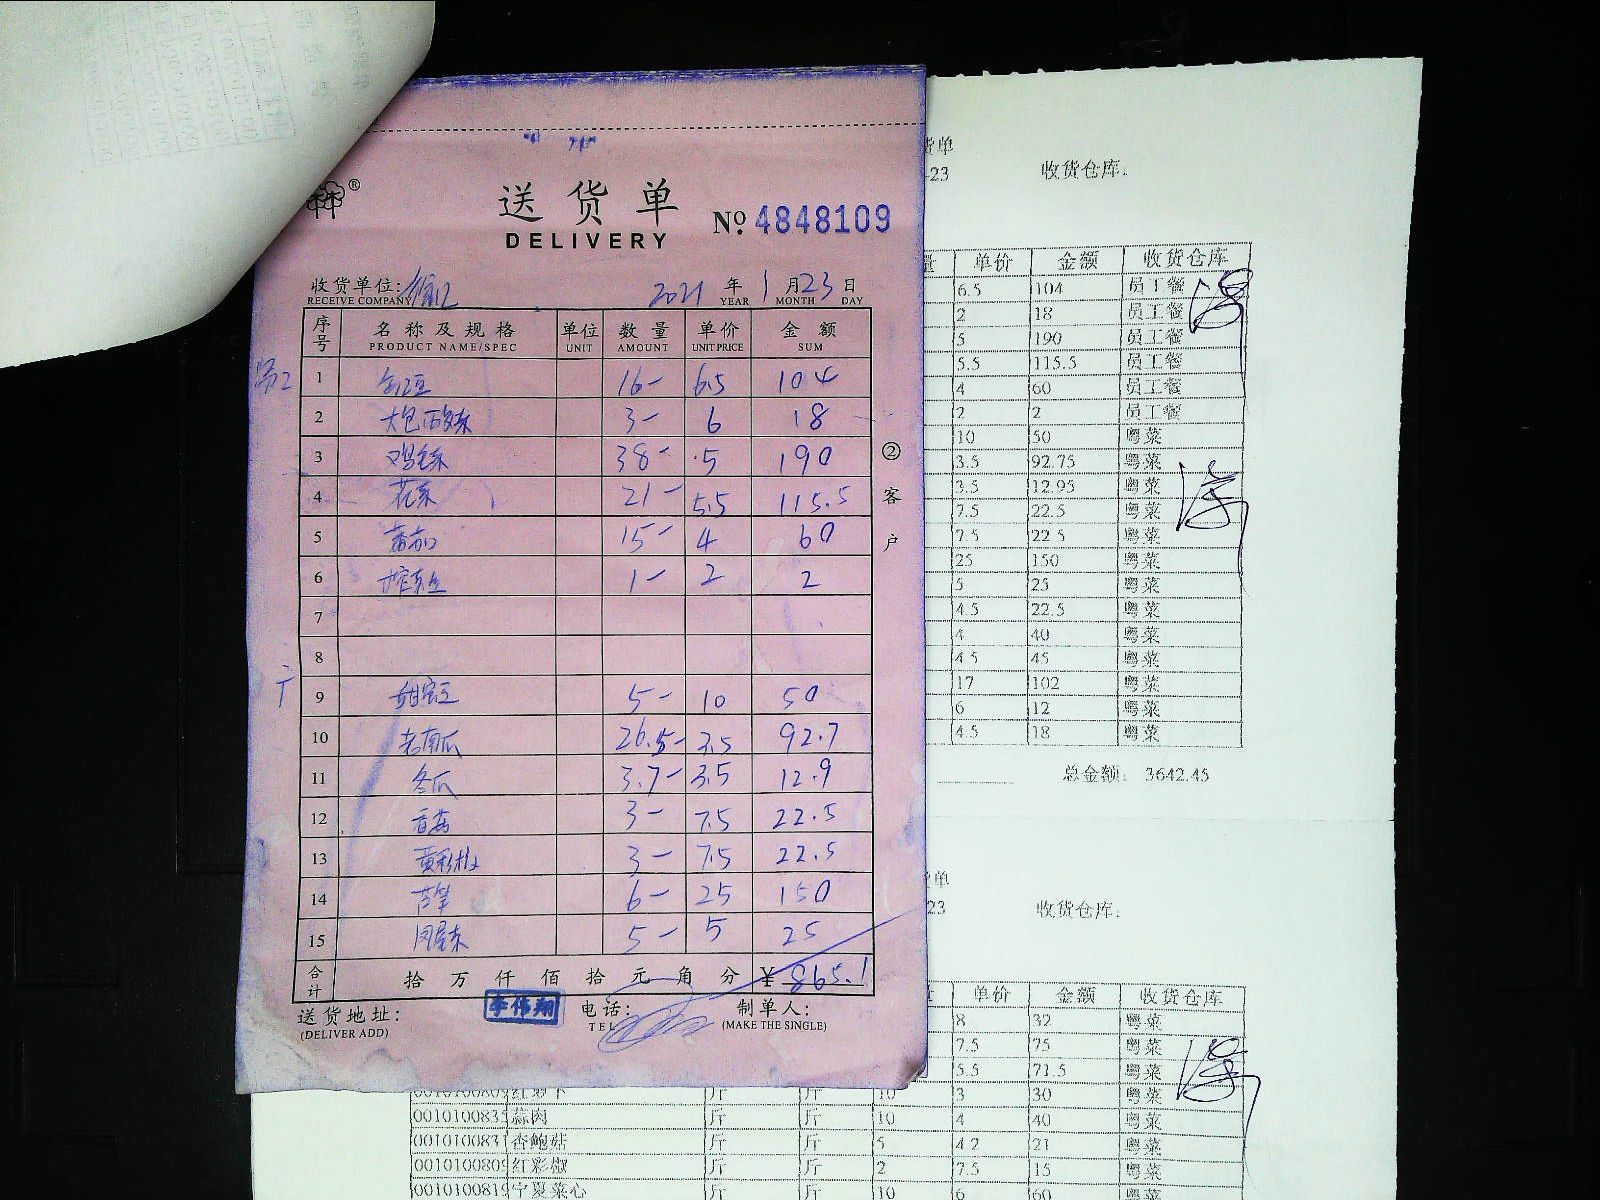 送货单
DELIVERY
№ 4848109
收货单位:
RECEIVE COMPANY
2021 年 1 月 23 日
YEAR MONTH DAY
序号 名称及规格 单位 数量 单价 金额
PRODUCT NAME/SPEC UNIT AMOUNT UNIT PRICE SUM
员工
1 16- 6.5 104
2 大包酸菜 3- 6 18
3 鸡毛菜 38- .5 190
4 花菜 21- 5.5 115.5
5 蕃茄 15- 4 60
6 榨菜丝 1- 2 2
7
8
广
9 甜蜜豆 5- 10 50
10 老南瓜 26.5- 3.5 92.7
11 冬瓜 3.7- 3.5 12.9
12 香菇 3- 7.5 22.5
13 黄彩椒 3- 7.5 22.5
14 芦笋 6- 25 150
15 5- 5 25
合计 拾万仟佰拾元角分 ¥ 865.1
送货地址:
(DELIVER ADD)
李伟翔
电话:
TEL
制单人:
(MAKE THE SINGLE)
②客户
货单
-23 收货仓库:
量 单价 金额 收货仓库
6.5 104 员工餐
2 18 员工餐
5 190 员工餐
5.5 115.5 员工餐
4 60 员工餐
2 2 员工餐
10 50 粤菜
3.5 92.75 粤菜
3.5 12.95 粤菜
7.5 22.5 粤菜
7.5 22.5 粤菜
25 150 粤菜
5 25 粤菜
4.5 22.5 粤菜
4 40 粤菜
4.5 45 粤菜
17 102 粤菜
6 12 粤菜
4.5 18 粤菜
总金额: 3642.45
货单
23 收货仓库:
量 单价 金额 收货仓库
8 32 粤菜
7.5 75 粤菜
5.5 71.5 粤菜
0010100809 红萝卜 斤 斤 10 3 30 粤菜
001010083 蒜肉 斤 斤 10 4 40 粤菜
001010083 杏鲍菇 斤 斤 5 4.2 21 粤菜
001010080 红彩椒 斤 斤 2 7.5 15 粤菜
001010081 宁夏菜心 斤 斤 10 6 60 粤菜